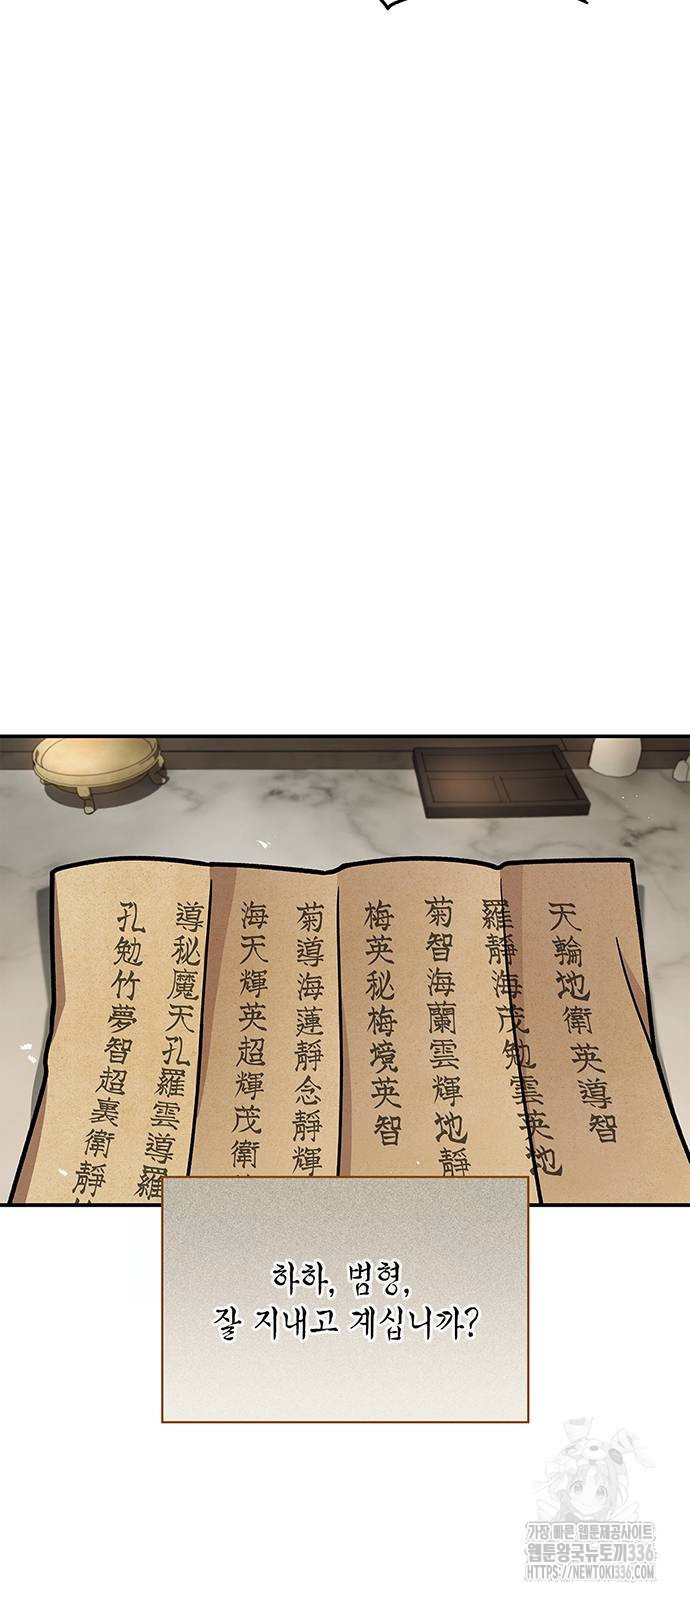 天輪地衛英導智
羅靜海茂勉雲英地
菊智海蘭雲輝地靜
梅英秘梅境英智
菊導海蓮靜念靜輝
海天輝英超輝茂衛
導秘魔天孔羅雲導羅
孔勉竹夢智超裏衛靜
하하, 범형,
잘 지내고 계십니까?
가장 빠른 웹툰제공사이트
웹툰왕국뉴토끼336
HTTPS://NEWTOKI336.COM